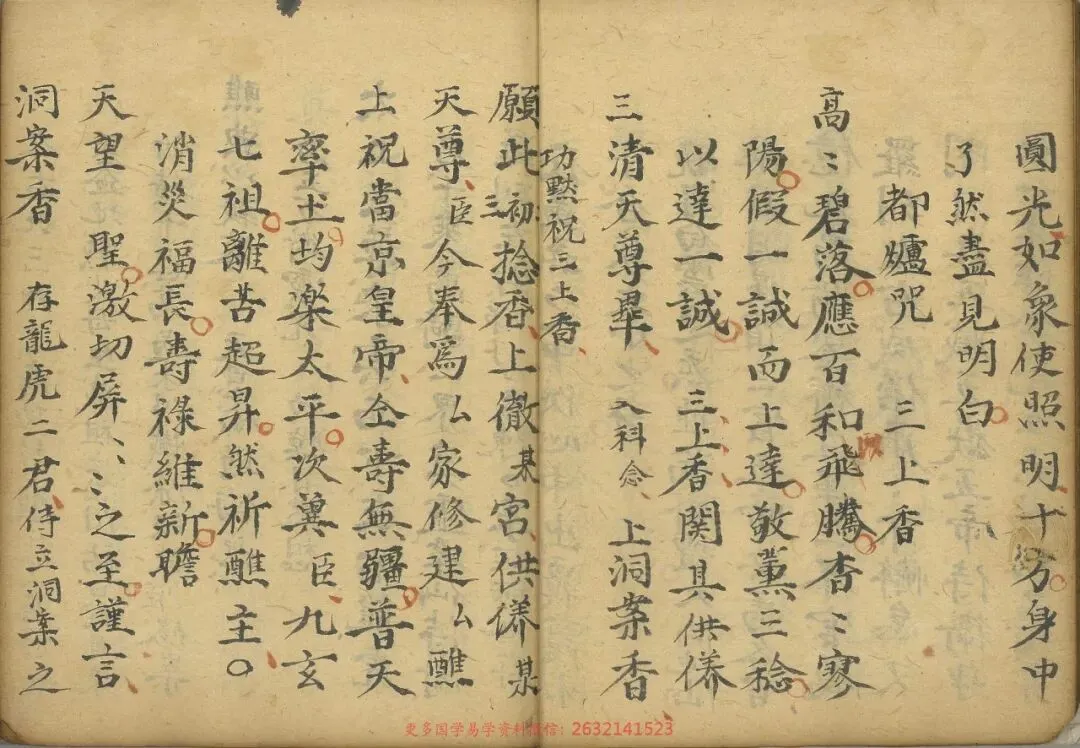 圓光如象使照明十方身中
了然盡見明白
都爐咒 三上香
高〻碧落應百和飛騰杳〻寥
陽假一誠而上達敬薰三稔
以達一誠 三上香関具供儀
三清天尊 入科念 上洞案香
功默祝三上香
願此初捻香上徹某宮供儀某
三
天尊臣今奉爲厶家修建厶醮
上祝當京皇帝仝壽無疆普天
率土均楽太平次冀臣九玄
七祖離苦超昇然祈醮主〇
消災福長壽祿維新瞻
天望聖激切屏〻之至謹言
洞案香 存龍虎二君侍立洞案之
更多国学易学资料微信：2632141523